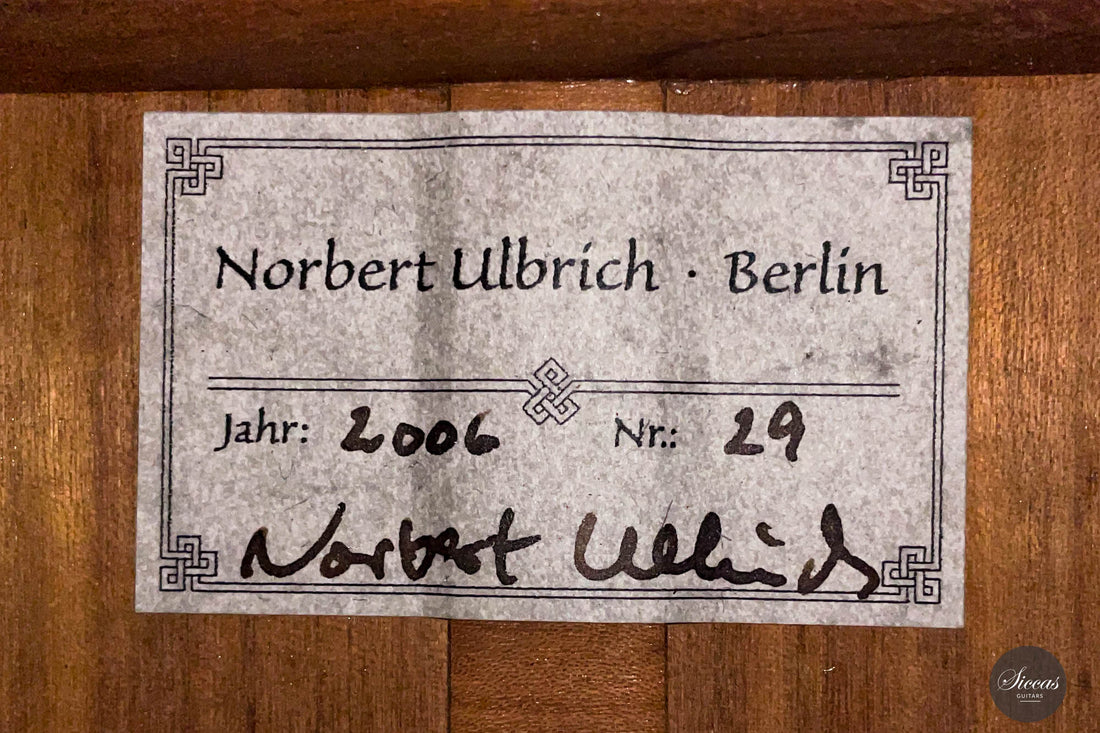 Norbert Ulbrich · Berlin
Jahr: 2006 Nr.: 29
Norbert Ulbrich
Siccas
GUITARS